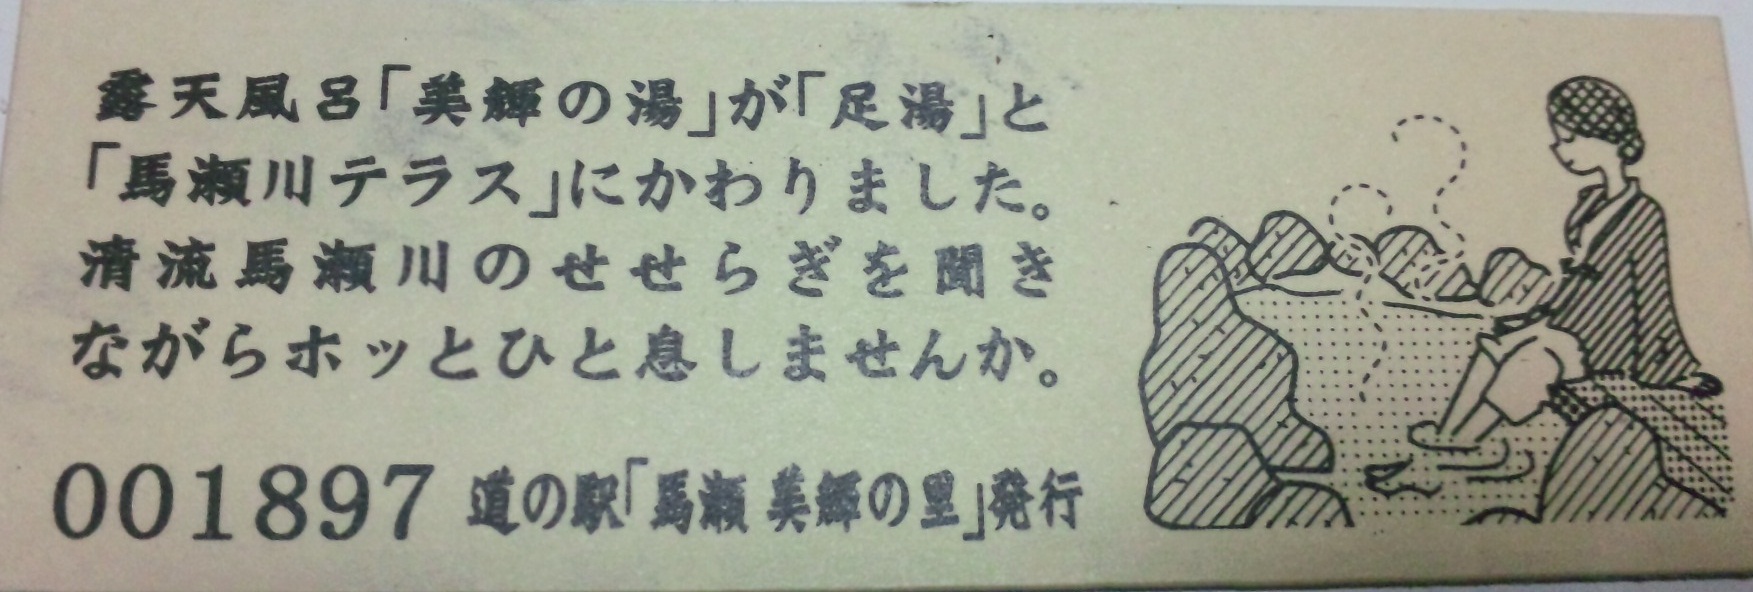 露天風呂「美輝の湯」が「足湯」と
「馬瀬川テラス」にかわりました。
清流馬瀬川のせせらぎを聞き
ながらホッとひと息しませんか。
001897 道の駅「馬瀬 美輝の里」発行